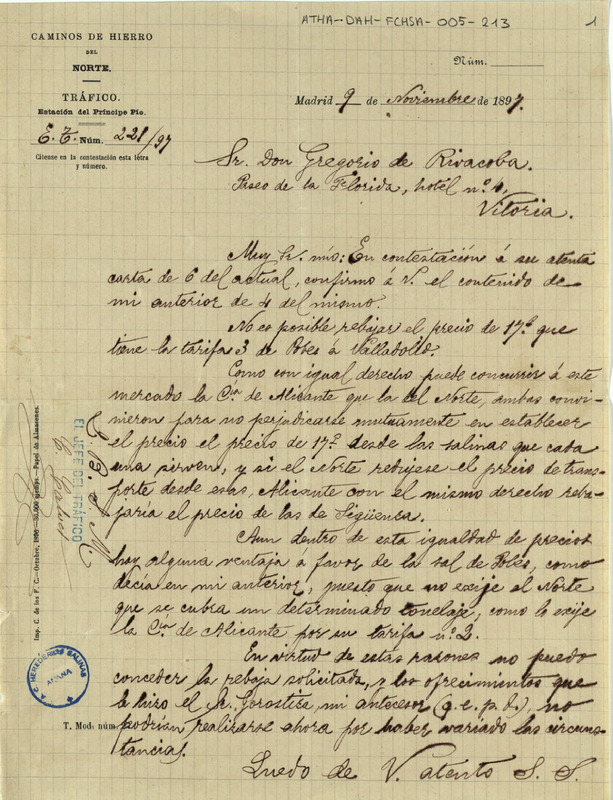 ATHA-DAH-FCHSA-005-213
1
CAMINOS DE HIERRO
DEL
NORTE.
TRÁFICO.
Estación del Príncipe Pío.
E. T. Núm. 221/97
Cítense en la contestación esta letra
y número.
Núm.
Madrid 9 de Noviembre de 1897.
Sr. Don Gregorio de Rivacoba.
Paseo de la Florida, hotel nº 4,
Vitoria.
Muy Sr. mío: En contestación á su atenta
carta de 6 del actual, confirmo á V. el contenido de
mi anterior de 4 del mismo.
No es posible rebajar el precio de 17 que
tiene la tarifa 3 de Pobes á Valladolid.
Como con igual derecho puede concurrir á este
mercado la Cía de Alicante que la del Norte, ambas convi-
nieron para no perjudicarse mutuamente en establecer
el precio el precio de 17 desde las salinas que cada
una sirven, y si el Norte redujese el precio de trans-
porte desde esas, Alicante con el mismo derecho reba-
jaria el precio de las de Sigüenza.
Aun dentro de esta igualdad de precios
hay alguna ventaja á favor de la sal de Pobes, como
decía en mi anterior, puesto que no exije el Norte
que se cubra un determinado tonelaje, como lo exije
la Cía de Alicante por su tarifa nº 2.
En virtud de estas razones no puedo
conceder la rebaja solicitada, y los ofrecimientos que
le hizo el Sr. Gorostiza mi antecesor (q. e. p. d.), no
podrían realizarse ahora por haber variado las circuns-
tancias.
Quedo de V. atento S. S.
EL JEFE DEL TRÁFICO
Imp. C. de los F. C.—Octubre, 1896—Papel de Almacenes.
HEREDEROS SALINAS
AÑANA
T. Mod. núm.